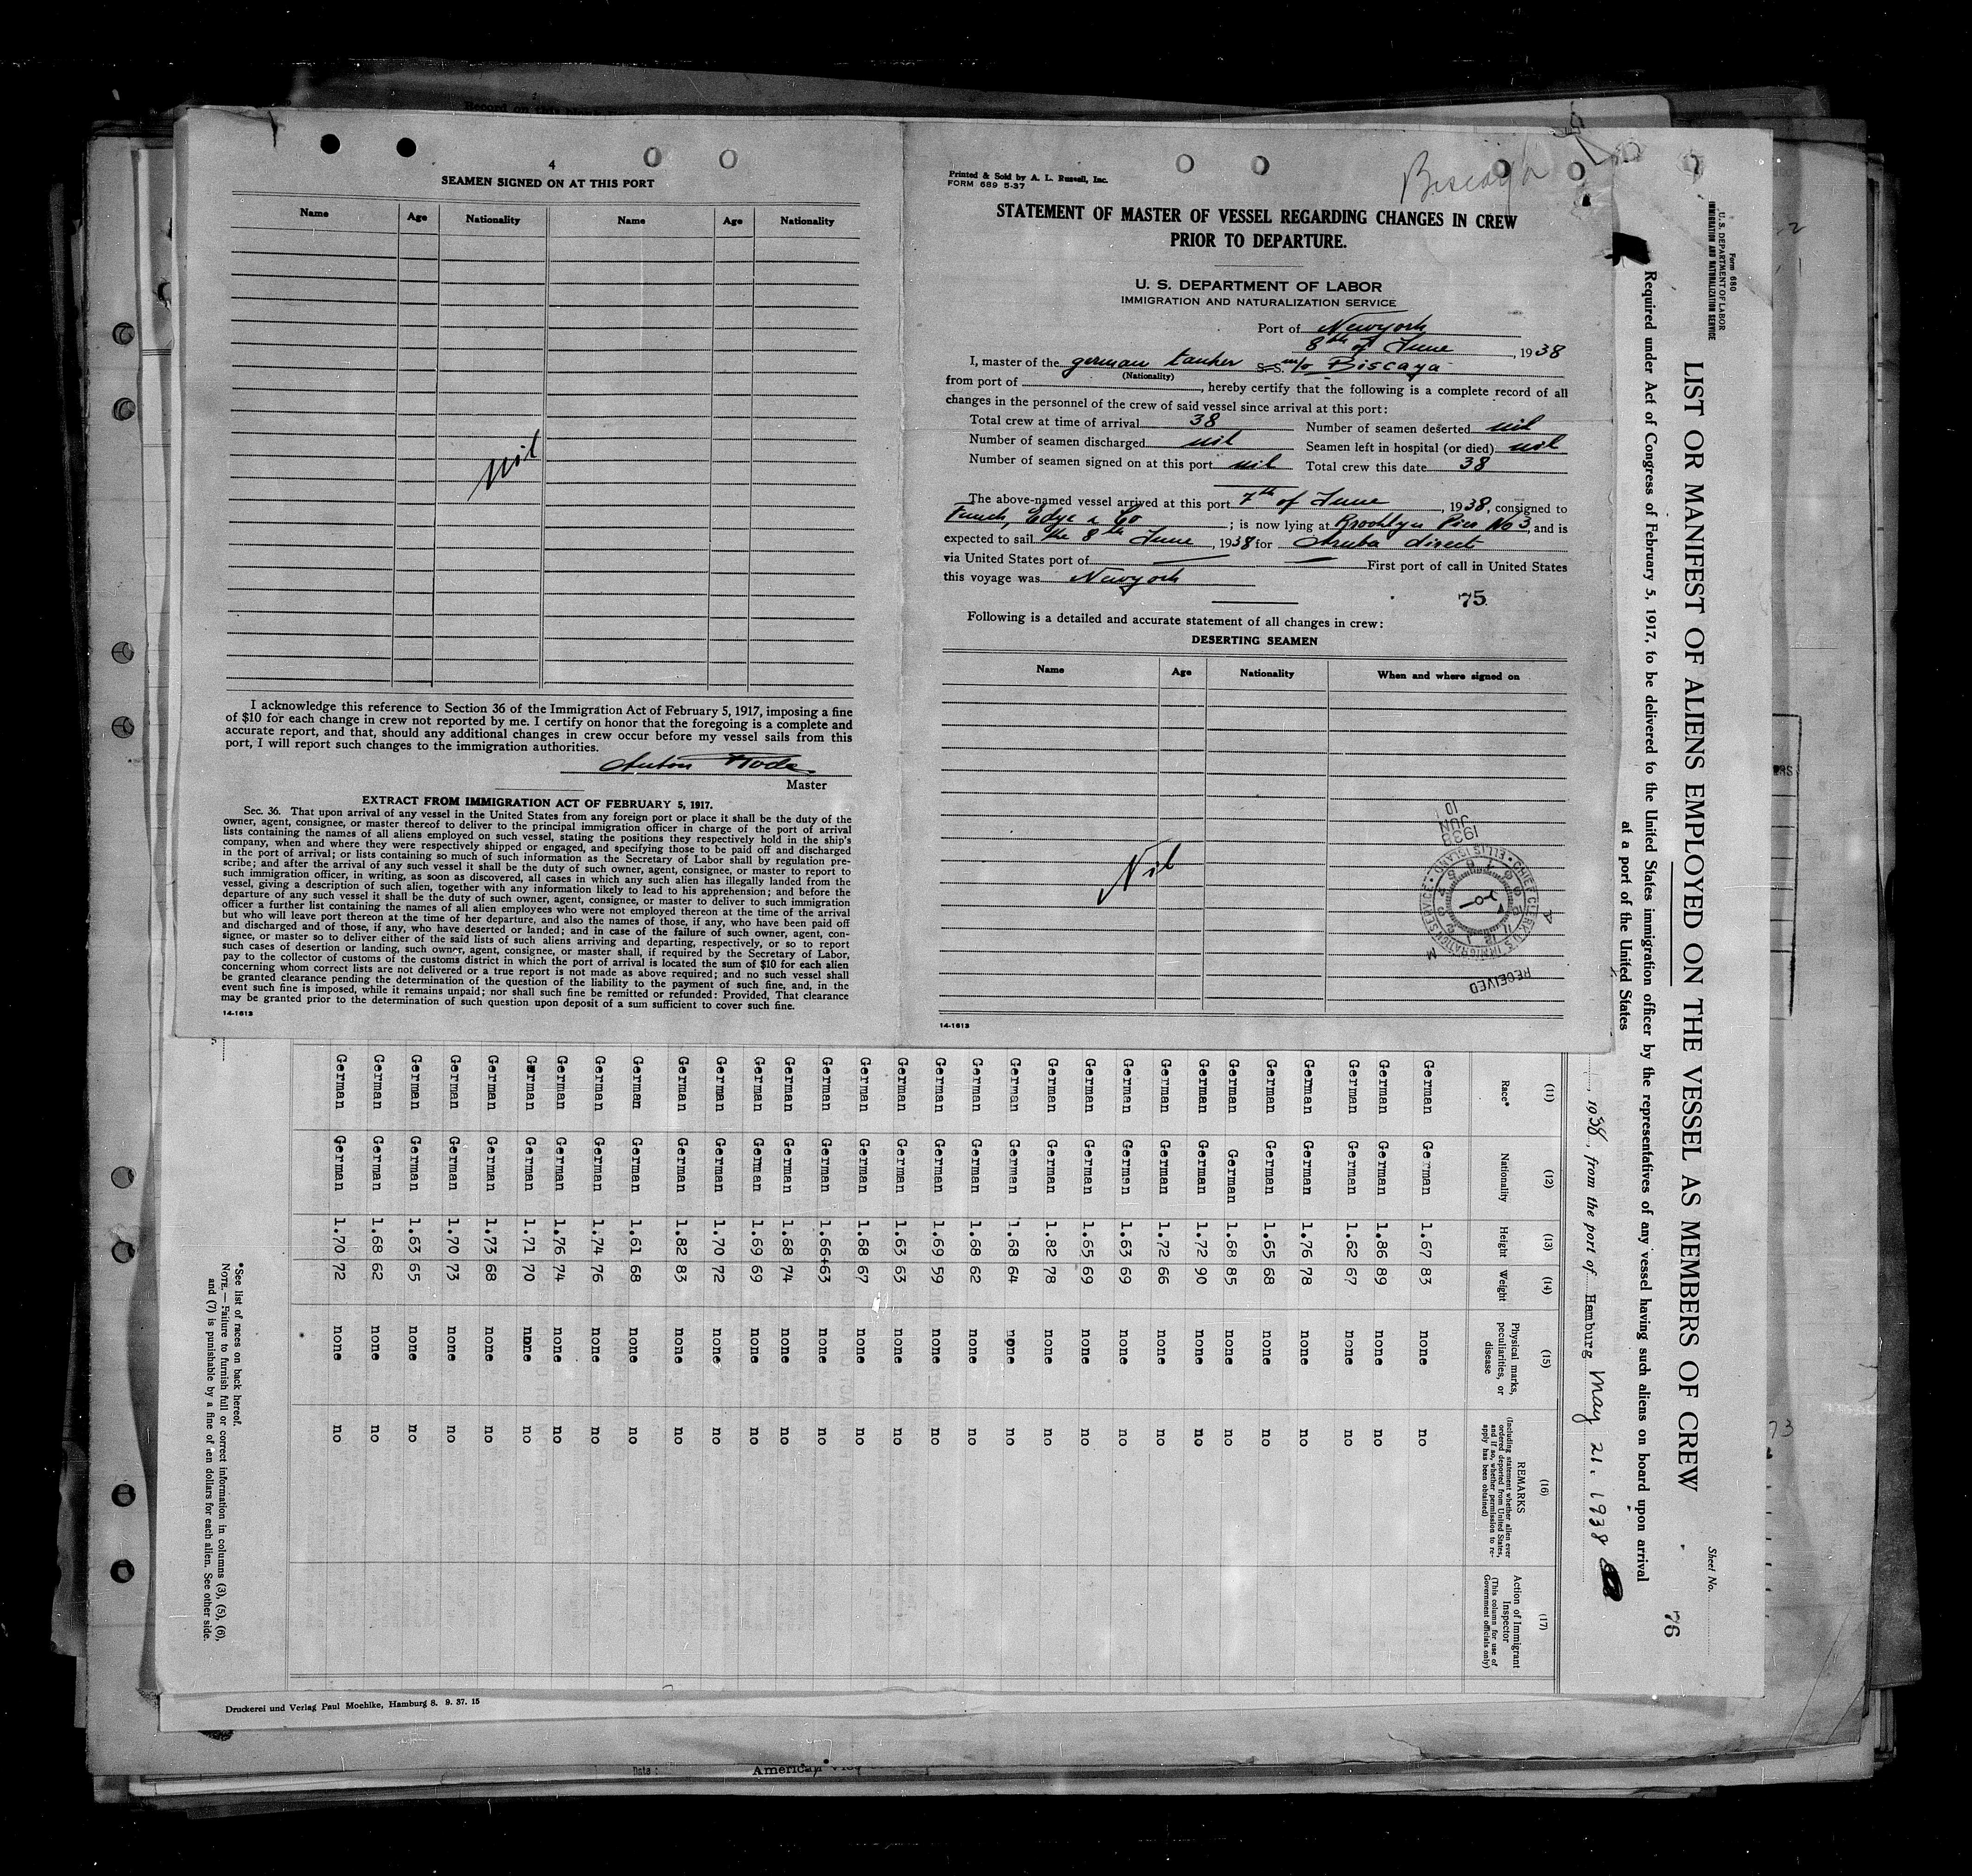 4
SEAMEN SIGNED ON AT THIS PORT
Name Age Nationality Name Age Nationality
nil
I acknowledge this reference to Section 36 of the Immigration Act of February 5, 1917, imposing a fine
of $10 for each change in crew not reported by me. I certify on honor that the foregoing is a complete and
accurate report, and that, should any additional changes in crew occur before my vessel sails from this
port, I will report such changes to the immigration authorities.
Anton
Master
EXTRACT FROM IMMIGRATION ACT OF FEBRUARY 5, 1917.
Sec. 36. That upon arrival of any vessel in the United States from any foreign port or place it shall be the duty of the
owner, agent, consignee, or master thereof to deliver to the principal immigration officer in charge of the port of arrival
lists containing the names of all aliens employed on such vessel, stating the positions they respectively hold in the ship's
company, when and where they were respectively shipped or engaged, and specifying those to be paid off and discharged
in the port of arrival; or lists containing so much of such information as the Secretary of Labor shall by regulation pre-
scribe; and after the arrival of any such vessel it shall be the duty of such owner, agent, consignee, or master to report to
such immigration officer, in writing, as soon as discovered, all cases in which any such alien has illegally landed from the
vessel, giving a description of such alien, together with any information likely to lead to his apprehension; and before the
departure of any such vessel it shall be the duty of such owner, agent, consignee, or master to deliver to such immigration
officer a further list containing the names of all alien employees who were not employed thereon at the time of the arrival
but who will leave port thereon at the time of her departure, and also the names of those, if any, who have been paid off
and discharged and of those, if any, who have deserted or landed; and in case of the failure of such owner, agent, con-
signee, or master so to deliver either of the said lists of such aliens arriving and departing, respectively, or so to report
such cases of desertion or landing, such owner, agent, consignee, or master shall, if required by the Secretary of Labor,
pay to the collector of customs of the customs district in which the port of arrival is located the sum of $10 for each alien
concerning whom correct lists are not delivered or a true report is not made as above required; and no such vessel shall
be granted clearance pending the determination of the question of the liability to the payment of such fine, and, in the
event such fine is imposed, while it remains unpaid; nor shall such fine be remitted or refunded: Provided, That clearance
may be granted prior to the determination of such question upon deposit of a sum sufficient to cover such fine.
14-1613
Biscaya
Printed & Sold by A. L. Russell, Inc.
FORM 689 5-37
STATEMENT OF MASTER OF VESSEL REGARDING CHANGES IN CREW
PRIOR TO DEPARTURE.
U. S. DEPARTMENT OF LABOR
IMMIGRATION AND NATURALIZATION SERVICE
Port of Newyork
8th of June, 1938
I, master of the german tanker S.S. m/s Biscaya
(Nationality)
from port of , hereby certify that the following is a complete record of all
changes in the personnel of the crew of said vessel since arrival at this port:
Total crew at time of arrival 38 Number of seamen deserted nil
Number of seamen discharged nil Seamen left in hospital (or died) nil
Number of seamen signed on at this port nil Total crew this date 38
The above-named vessel arrived at this port 7th of June, 1938, consigned to
Funch, Edye & Co ; is now lying at Brooklyn Pier No 3, and is
expected to sail the 8th June, 1938 for Aruba direct
via United States port of — — First port of call in United States
this voyage was Newyork
75
Following is a detailed and accurate statement of all changes in crew:
DESERTING SEAMEN
Name Age Nationality When and where signed on
Nil
RECEIVED
CHIEF CLERK U.S. IMMIGRATION SERVICE ELLIS ISLAND
JUN 10
14-1613
Form 680
U. S. DEPARTMENT OF LABOR
IMMIGRATION AND NATURALIZATION SERVICE
Sheet No.
LIST OR MANIFEST OF ALIENS EMPLOYED ON THE VESSEL AS MEMBERS OF CREW
76
Required under Act of Congress of February 5, 1917, to be delivered to the United States immigration officer by the representatives of any vessel having such aliens on board upon arrival
at a port of the United States
, 1938, from the port of Hamburg May 21. 1938
(11) (12) (13) (14) (15) (16) (17)
Race* Nationality Height Weight Physical marks, peculiarities, or disease REMARKS (Including statement whether alien ever ordered deported from United States, and if so, whether permission to re-apply has been obtained) Action of Immigrant Inspector (This column for use of Government officials only)
German German 1.67 83 none no
German German 1.86 89 none no
German German 1.62 67 none no
German German 1.76 78 none no
German German 1.65 68 none no
German German 1.68 85 none no
German German 1.72 90 none no
German German 1.72 66 none no
German German 1.63 69 none no
German German 1.65 69 none no
German German 1.82 78 none no
German German 1.68 64 none no
German German 1.68 62 none no
German German 1.69 59 none no
German German 1.63 63 none no
German German 1.68 67 none no
German German 1.66+63 none no
German German 1.68 74 none no
German German 1.69 69 none no
German German 1.70 72 none no
German German 1.82 83 none no
German German 1.61 68 none no
German German 1.74 76 none no
German German 1.76 74 none no
German German 1.71 70 none no
German German 1.73 68 none no
German German 1.70 73 none no
German German 1.63 65 none no
German German 1.68 62 none no
German German 1.70 72 none no
*See list of races on back hereof.
NOTE.—Failure to furnish full or correct information in columns (3), (5), (6),
and (7) is punishable by a fine of ten dollars for each alien. See other side.
Druckerei und Verlag Paul Moehlke, Hamburg 8. 9. 37. 15
73
Date:
American